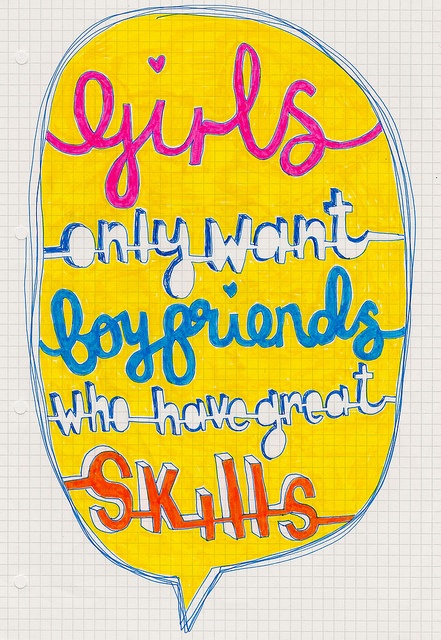 girls
only want
boyfriends
who have great
skills